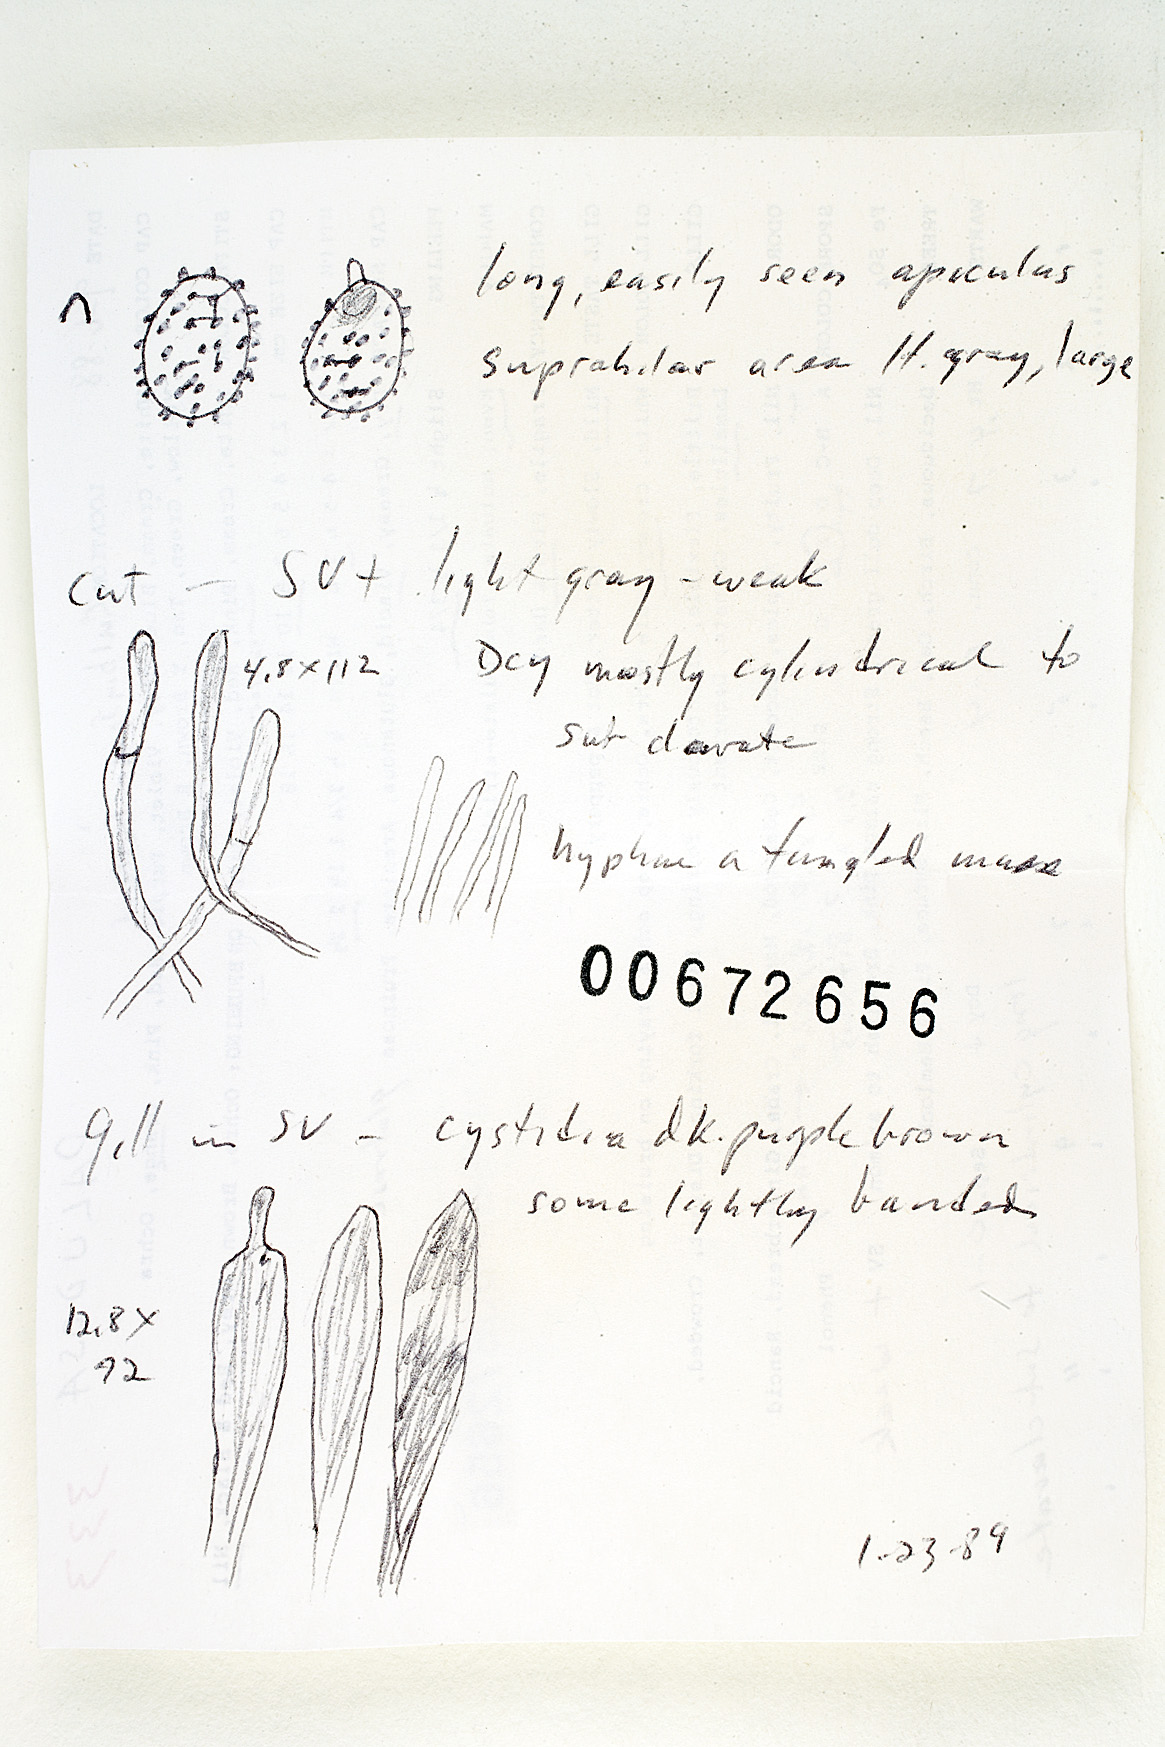 long, easily seen apiculus
suprahilar area lt. gray, large
Cut - SV+ light gray - weak
4.8 x 112
Dcy mostly cylindrical to
sub clavate
hyphae a tangled mass
00672656
Gill in SV - cystidia dk. purple brown
some lightly banded
12.8 x
92
1-23-89